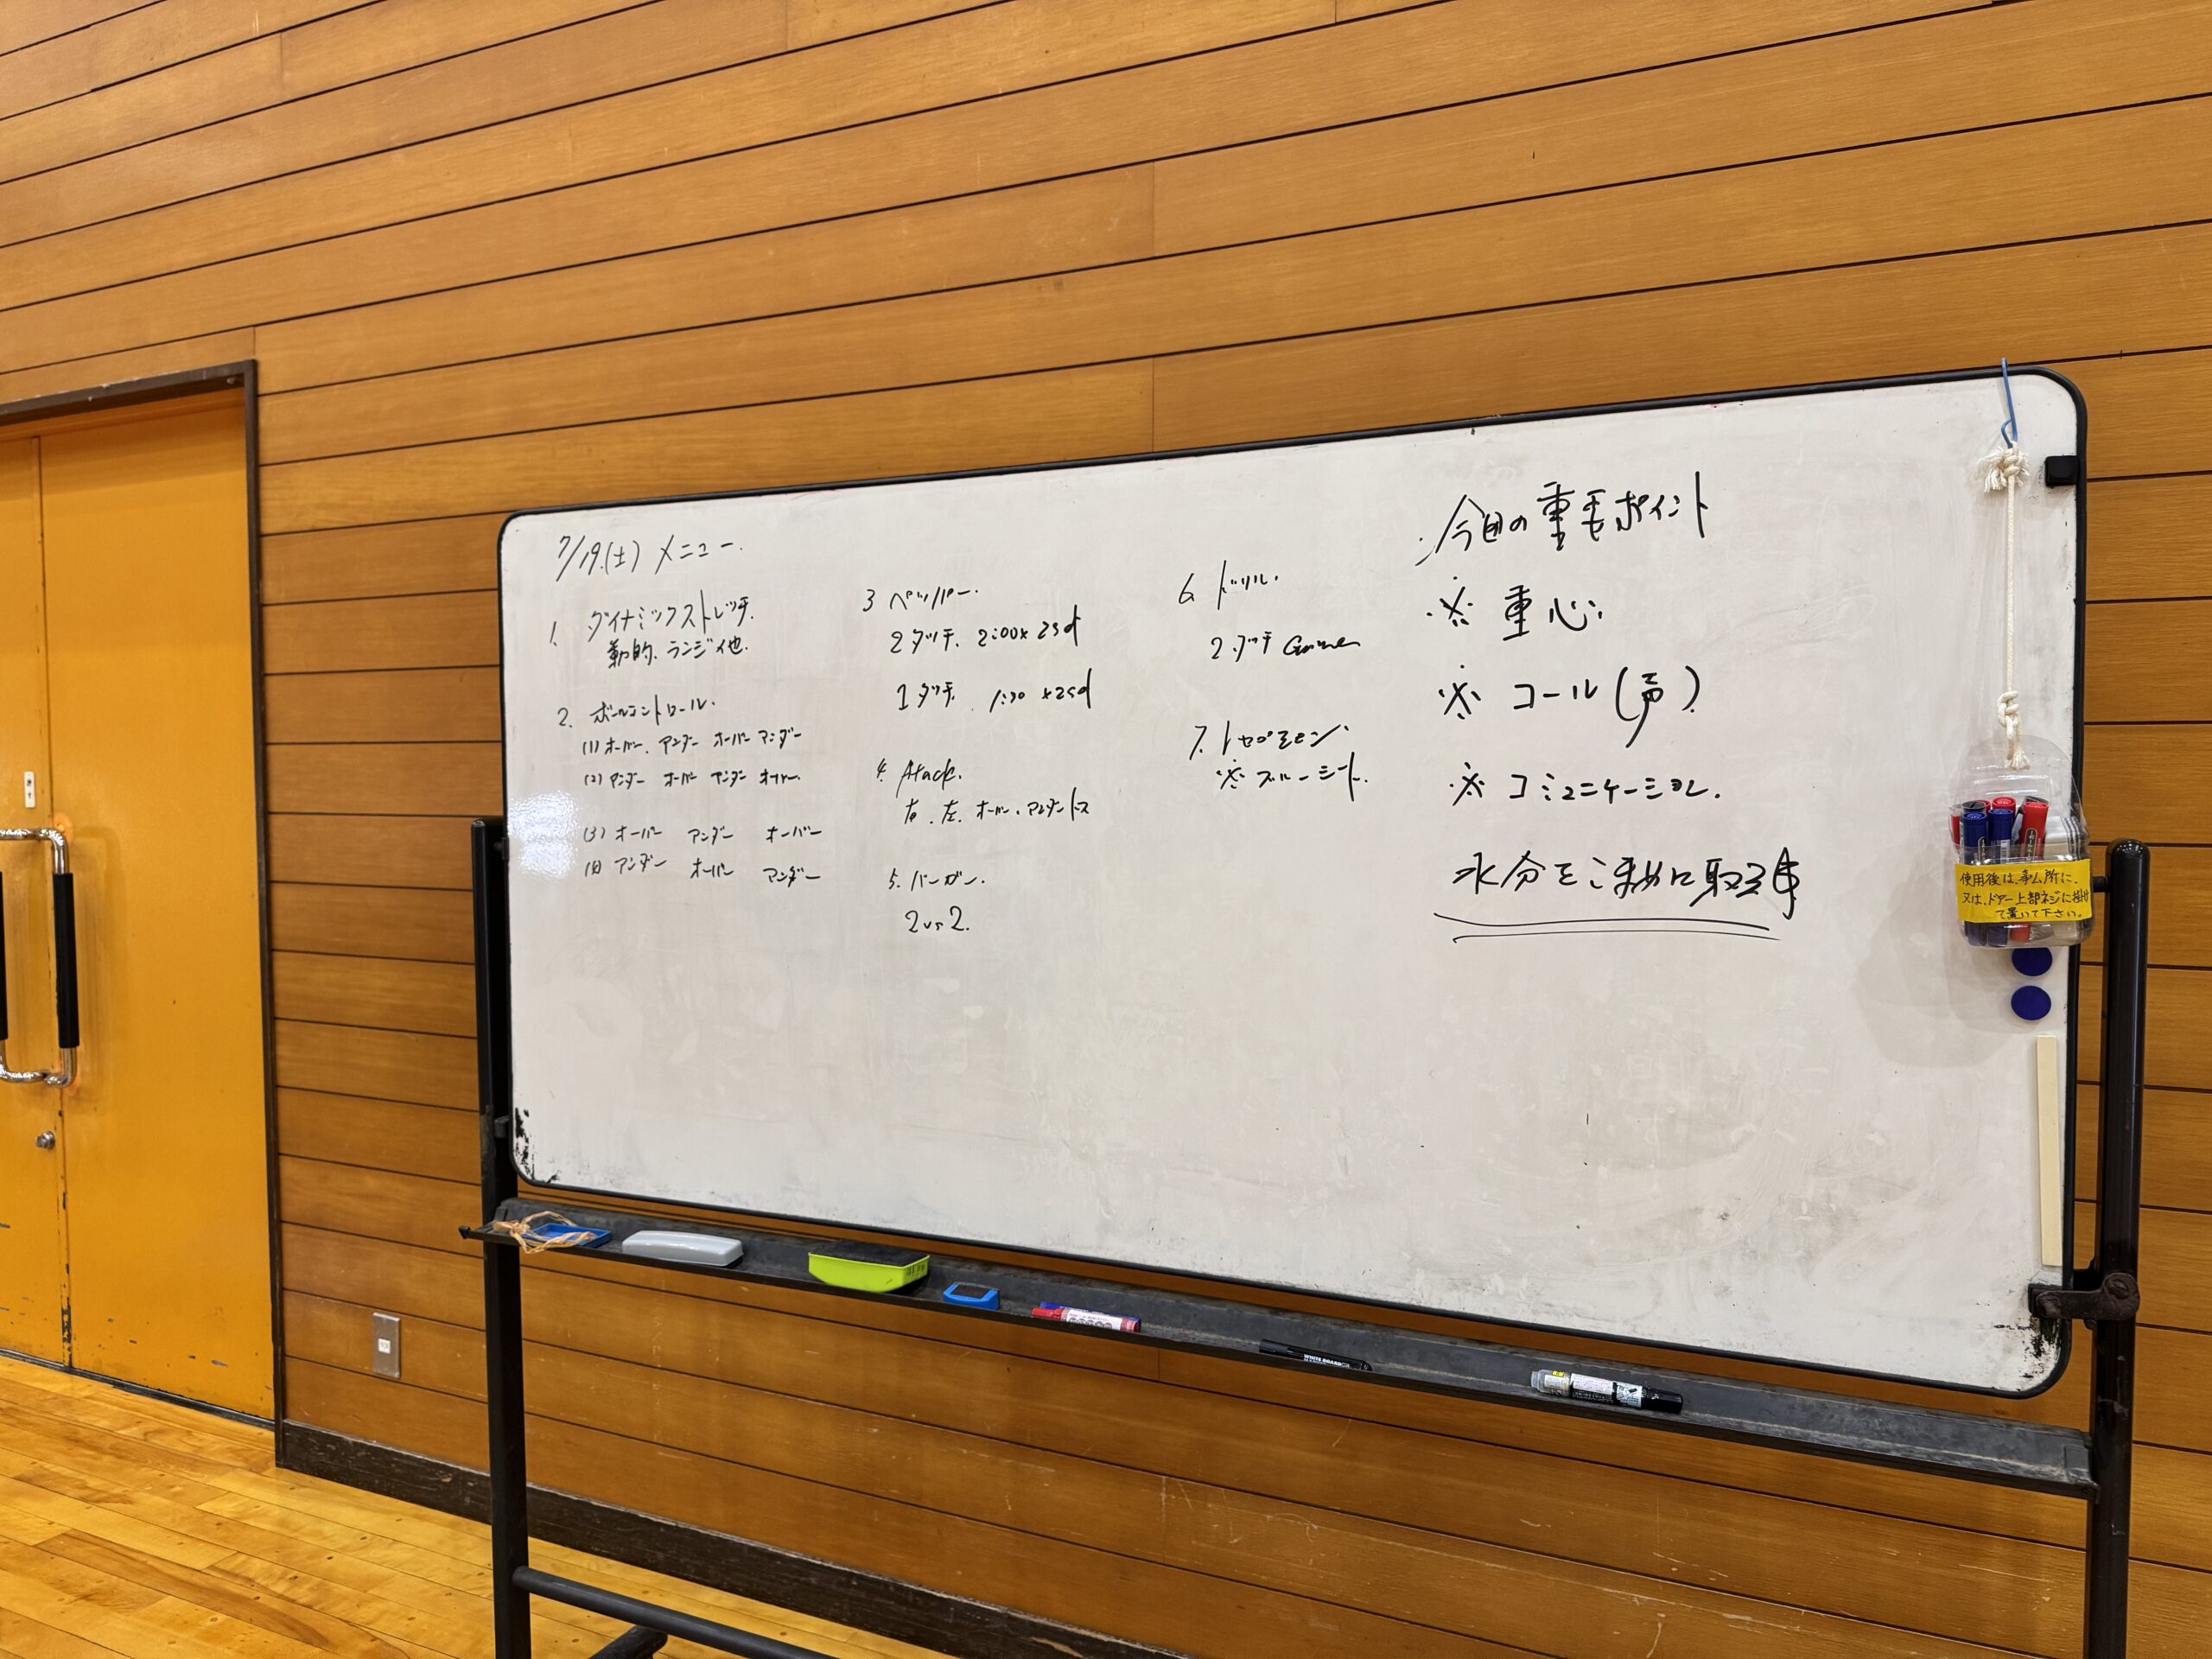 7/19.(土) メニュー.
1. ダイナミックストレッチ.
動的、ランジ他.
2. ボールコントロール.
(1) オーバー、アンダー オーバー アンダー
(2) アンダー オーバー アンダー オーバー.
(3) オーバー アンダー オーバー
(4) アンダー オーバー アンダー
3 ペッパー.
2タッチ. 2:00×2sd
1タッチ. 1:30 ×2sd
4. Atack.
右.左.オーバー、アンダートス
5. バーガー.
2vs2.
6 ドリル.
2.タッチ Game
7. レセプション.
※ ブルーシート.
今日の重要ポイント
※ 重心.
※ コール(声)
※ コミュニケーション.
水分をこまめに取る事
使用後は、事ム所に、
又は、ドアー上部ネジに掛け
て置いて下さい。
WHITE BOARD